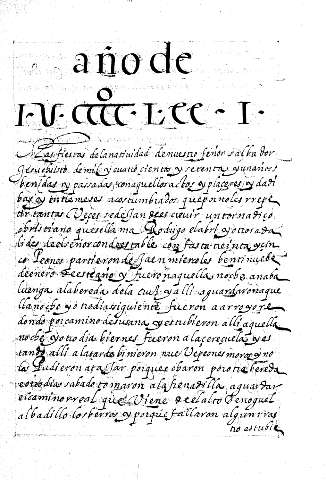 año de
I. V. CCCCº. Lxx. I.
Las fiestas de la natividad de nuestro señor salbador
Jesuxpisto. de mil y quatrocientos y setenta y un años
benidas y pasadas con aquellos autos y placeres y dadi
bas y entremeses acostumbrados que por no les repe
tir tantas veces se dexan de escrivir un tornadiço
xpristiano que se llama Rodrigo el abri y otros ada
lides del señor condestable con fasta veinte y cin
co peones partieron de Jaen miercoles beinti nuebe
de enero deste año y fueron aquella noche a naba
luenga a la bereda de la cruz y alli aguardaron aque
lla noche y otro dia siguiente fueron a arroyo re
dondo por camino de susana y estubieron alli aquella
noche y otro dia biernes fueron a la cereçuela y es
tando alli a la tarde binieron nuebe peones moros y no
los pudieron atajar porque echaron por otra bereda
e otro dia sabado tomaron a la senadilla a guardar
el camino real que viene de el alto de noguel
al badillo los berros y porque fallaron algientras
no estubie